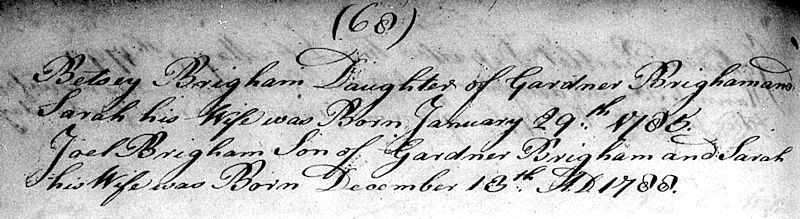 (68)
Betsey Brigham Daughter of Gardner Brigham and
Sarah his Wife was Born January 29.th 1785.
Joel Brigham Son of Gardner Brigham and Sarah
his Wife was Born December 13.th AD 1788.